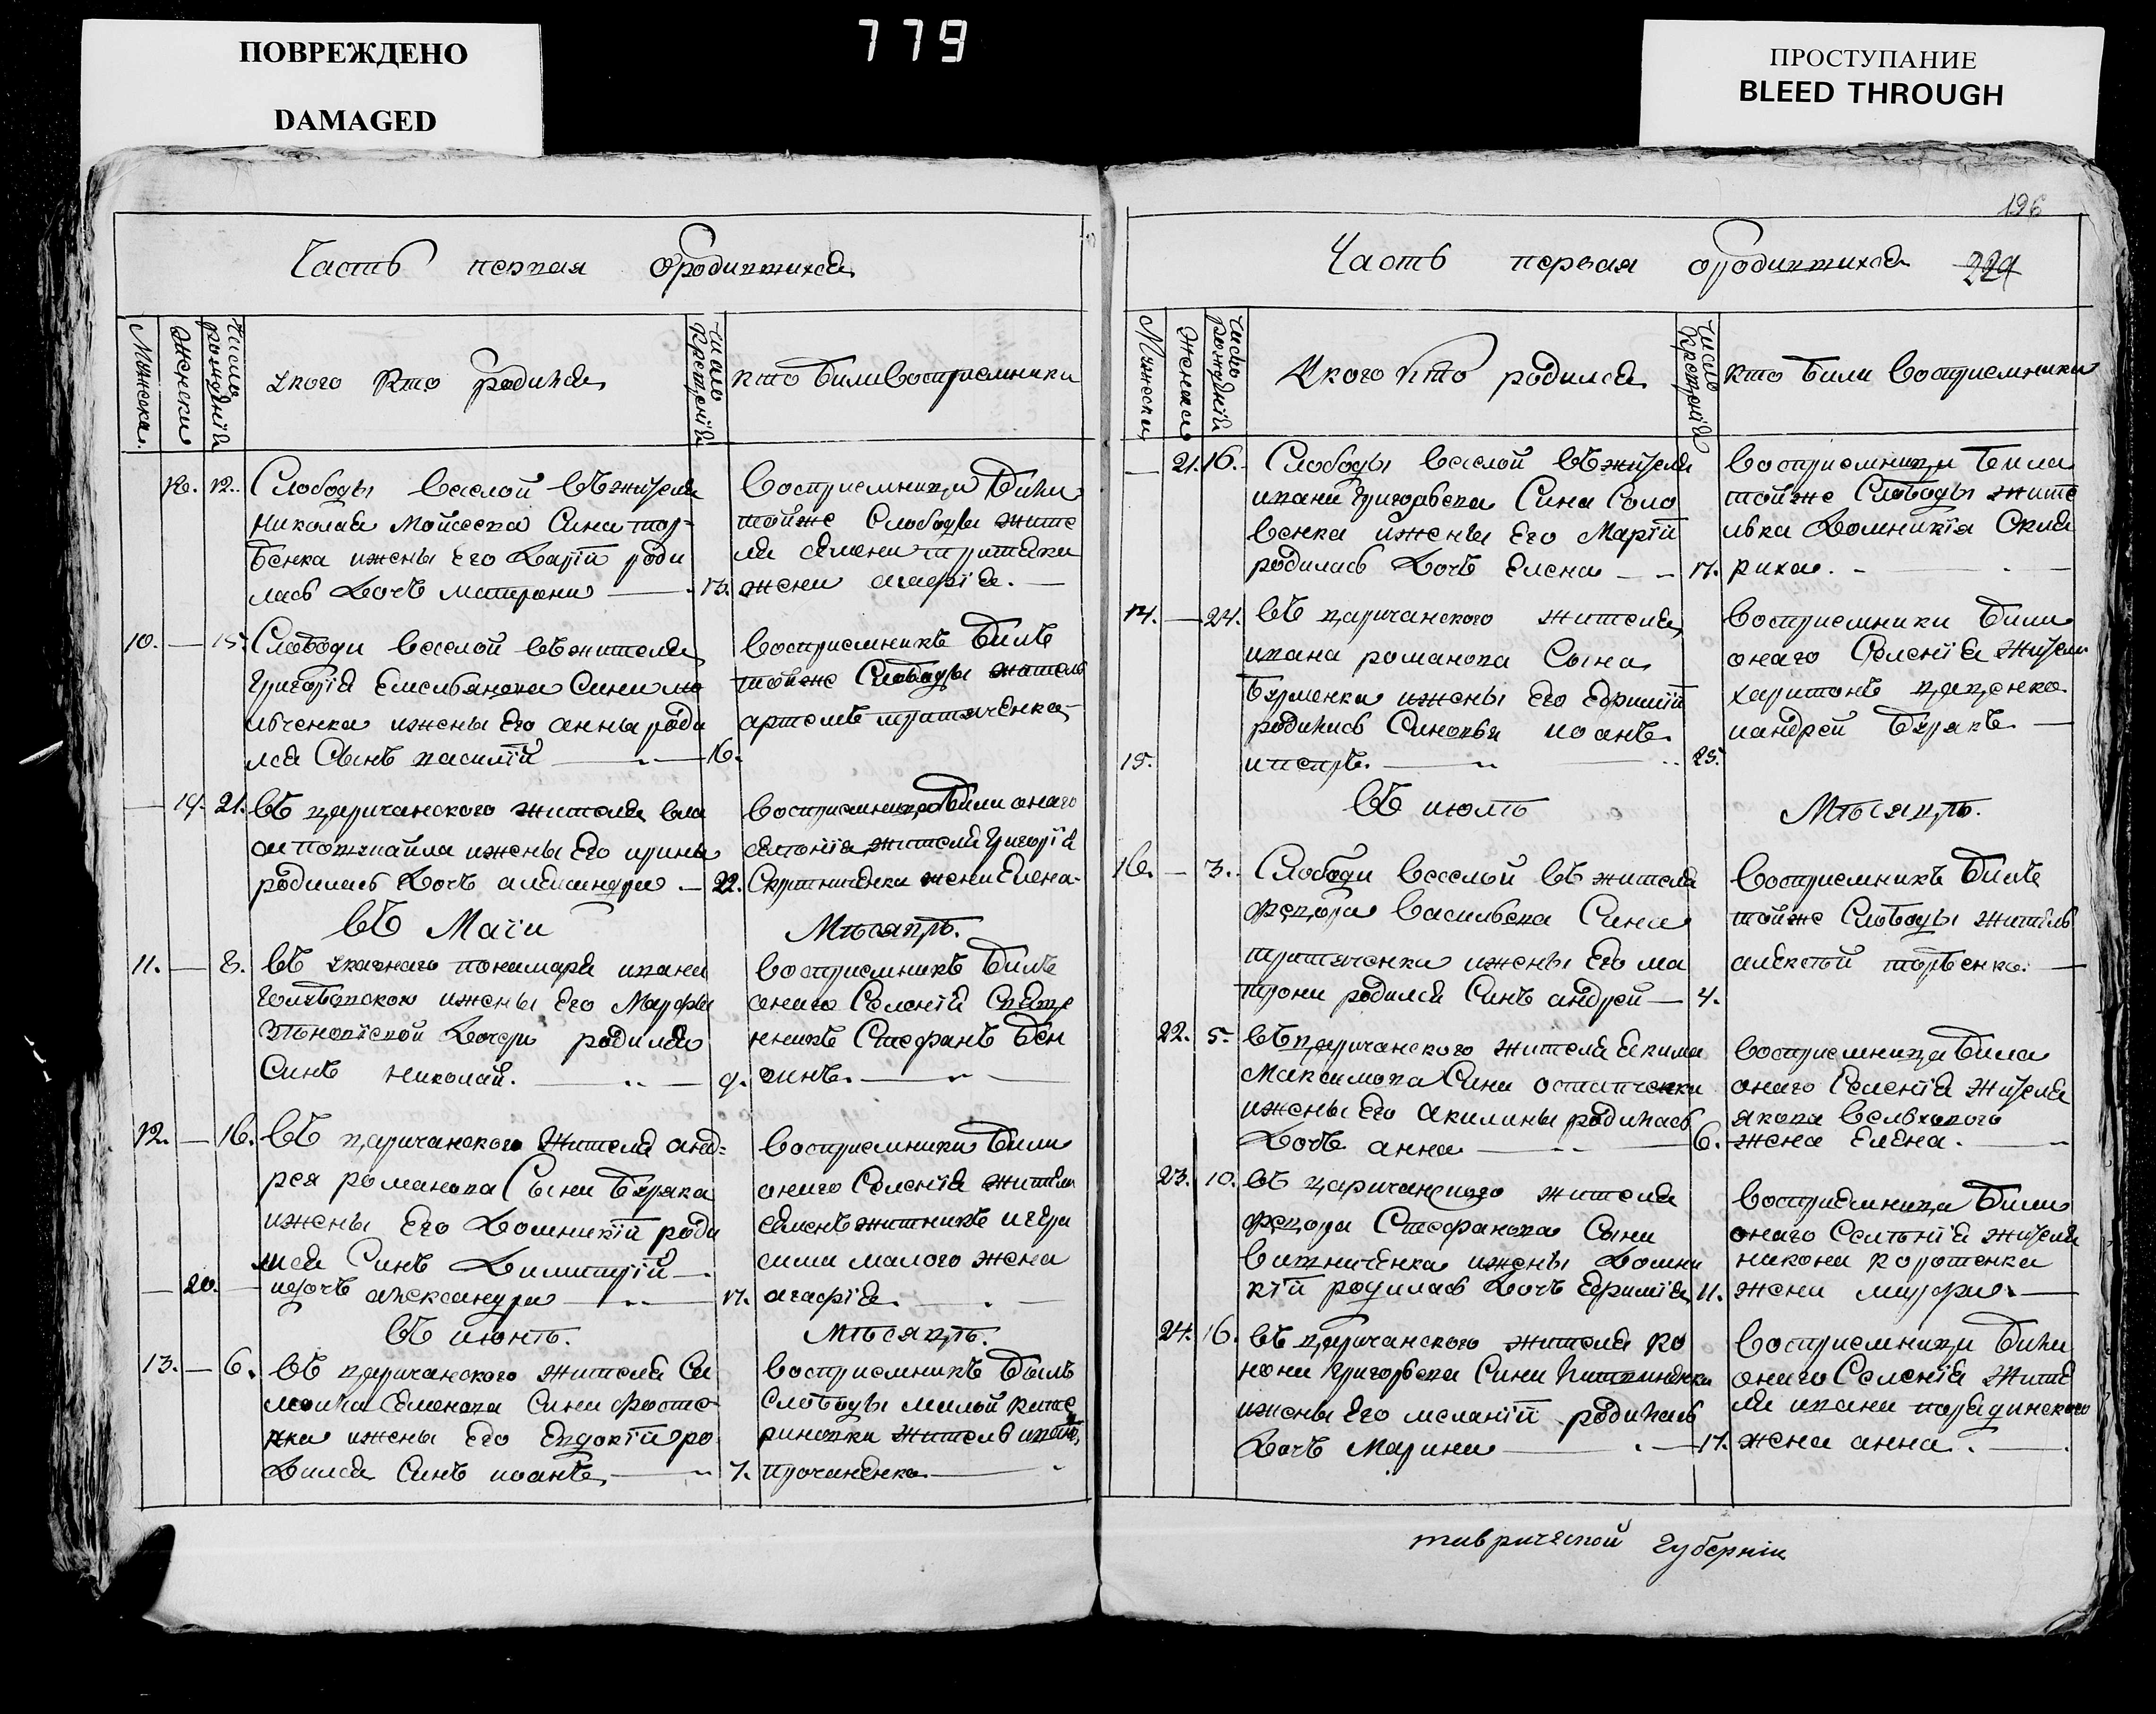 ПОВРЕЖДЕНО
DAMAGED
779
ПРОСТУПАНИЕ
BLEED THROUGH
Часть первая ородившихся
Мужеска.
Женски
Число рождения
укого кто родился
Число крещения
кто били восприемники
18. 12. Слободы Веселой въ жителя
Николая Мойсеева Сина тор-
бенка ижены его Дарїи роди
лась дочъ матрона 13.
восприемница била
тойже Слободы жите
ля Семена тритяки
жена агафія.
10. — 15. Слободи веселой въ жителя
Григорія Емельянова Сина мо
ивченка ижены его анны роди
лся Сынъ василїй 16.
восприемникъ билъ
тойже Слободы житель
артемъ тритяченка
— 19. 21. въ царичанского жителя вла
ижены его ирины
родилась дочъ александра — 22.
восприемница била онаго
селенія жителя Григорія
жена Елена.
въ Маїи Мѣсяцѣ.
11. — 8. въ указнаго пономаря ивана
ижены его Марфы
дочери родился
Синъ Николай. 9.
восприемникъ билъ
онаго Селенія Свяще
нникъ Стефанъ Бен
зинъ.
12. — 16. въ царичанского жителя анд-
рея романова Сына Буряка
ижены его Домникїи роди
лся Синъ Димитрїй
— 20. — идочъ александра 17.
восприемники били
онаго Селенія житель
семенъ житникъ игера
сима малого жена
агафія.
въ июнѣ. Мѣсяцѣ.
13. — 6. въ царичанского жителя Са
мойла Семенова Сина
ижены его Евдокїи ро
дился Синъ иоанъ 7.
восприемникъ былъ
слободы малой кате
риновки житель иванъ
прочаненко
196
Часть первая ородившихся 229
Мужески
Женски
Число рождения
Укого кто родился
Число крещения
кто били восприемники
— 21. 16. Слободы веселой въ жителя
ивана Григорьева Сина Соло
венка ижены его Марїи
родилась дочъ Елена 17.
восприемница била
тойже Слободы жите
лька Домникїя Скля
риха.
14. — 24. въ царичанского жителя
ивана романова Сына
Бурменка ижены его Ефимїи
родились Синовья иоанъ
15. ипетръ. 25.
восприемники били
онаго Селенія жители
харитонъ цаценко
иандрей Бурякъ
въ июлѣ Мѣсяцѣ.
16. — 3. Слободи веселой въ жителя
федора Васильева Сина
тритяченка ижены его ма
трони родился Синъ андрей — 4.
восприемникъ билъ
тойже Слободы житель
алексѣй торбенко.
22. 5. въ царичанского жителя Екима
Максимова Сина остапченка
ижены его акилины родилась
дочъ анна 6.
восприемница била
онаго Селенія жителя
якова вельхового
жена Елена.
23. 10. въ царичанского жителя
федора Стефанова Сына
витниченка ижены Домни
кїи родилась дочъ Ефимія 11.
восприемница била
онаго Селенія жителя
никона коротенка
жена марфа.
24. 16. въ царичанского жителя ко
нона Григорьева Сина
ижены его меланїи родилась
дочъ Марина 17.
восприемница била
онаго Селенія жите
ля ивана
жена анна.
таврической Губерніи